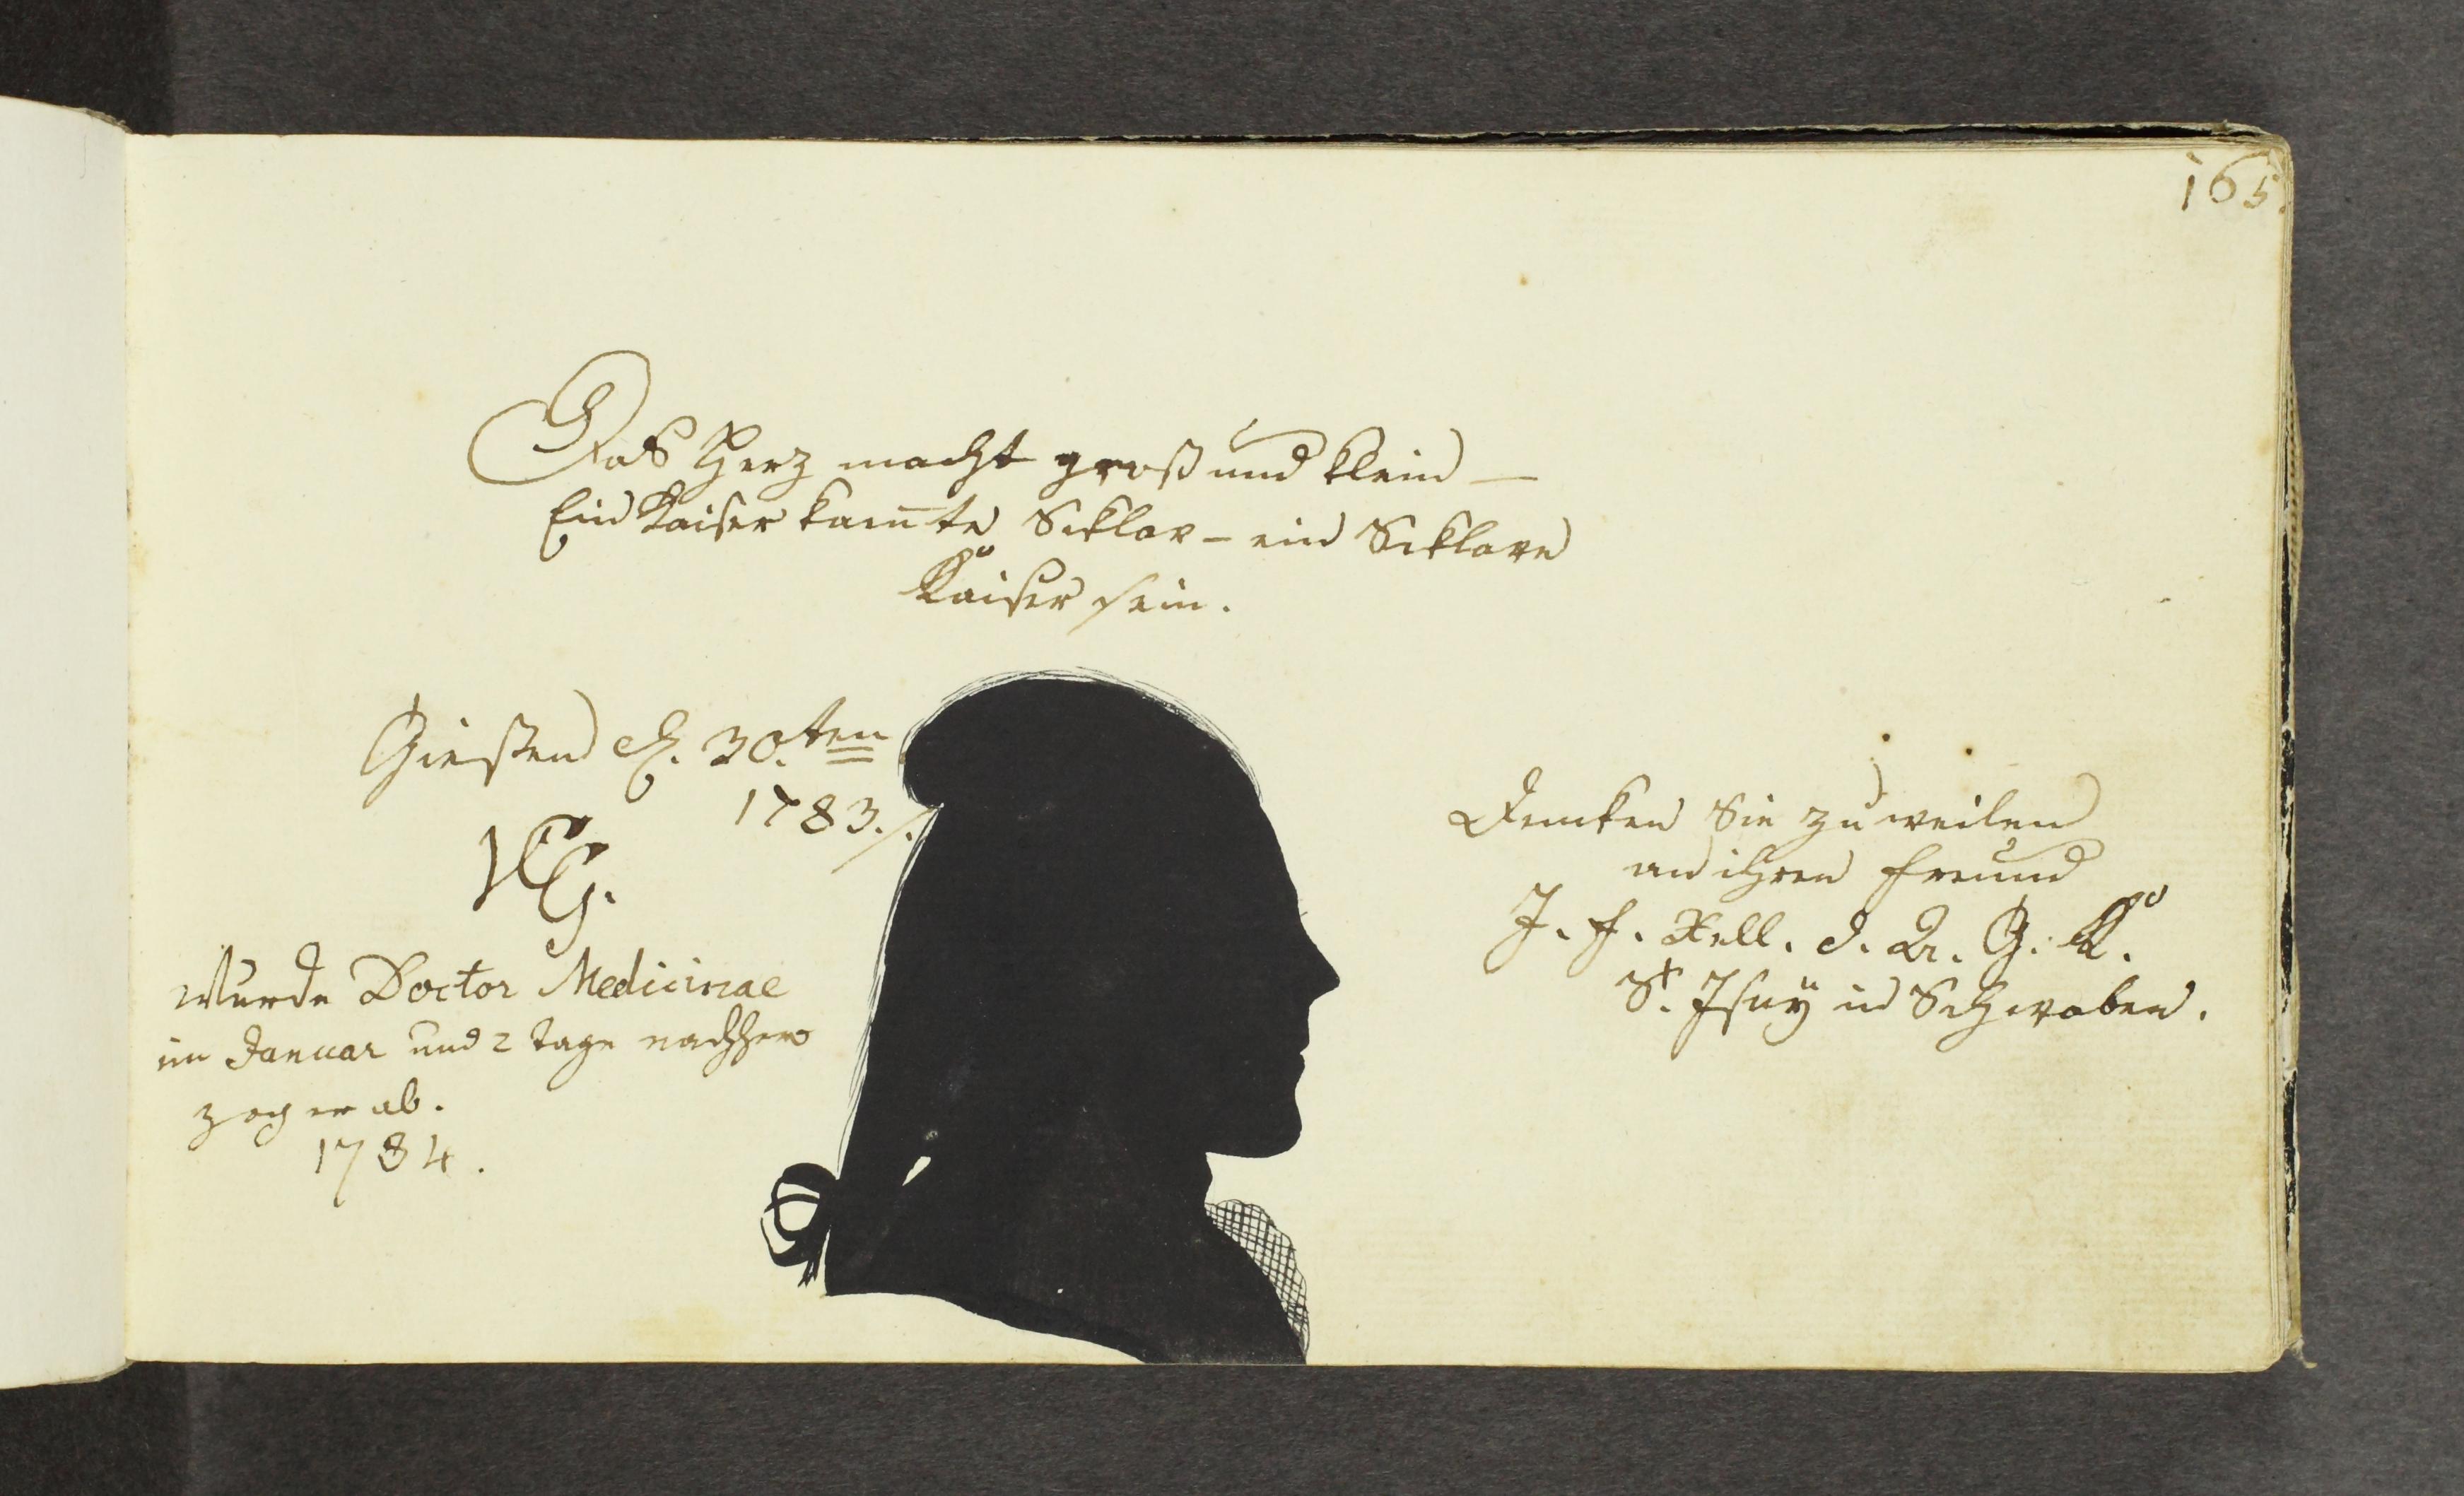 165.
Das Herz macht groß und klein —
Ein Kaiser kan̄te Scklav – ein Scklave
Kaiser sein.
Giessen d. 30.ten
1783./.
Wurde Doctor Medicinae
im Januar und 2 Tage nachher
zog er ab.
1784.
Dencken Sie zuweilen
an ihren Freund
J. F. Kell. d. A. G. K.
St. Isnÿ in Schwaben.